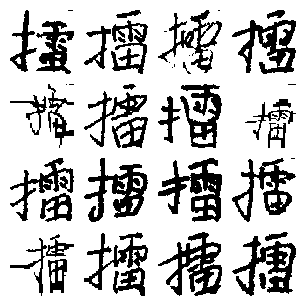 擂擂擂擂
擂擂擂擂
擂擂擂擂
擂擂擂擂